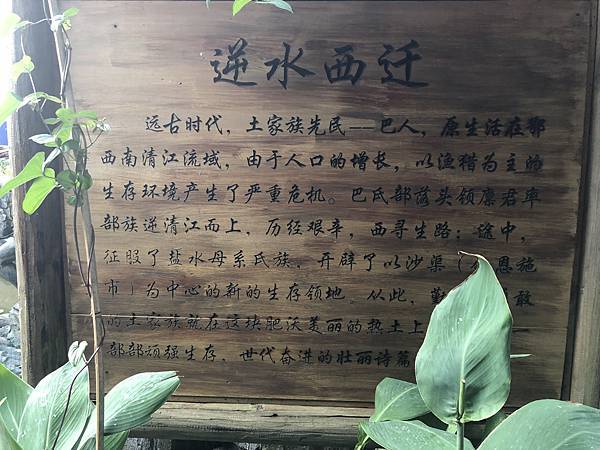 逆水西迁
远古时代，土家族先民——巴人，原生活在鄂
西南清江流域，由于人口的增长，以渔猎为主的
生存环境产生了严重危机。巴氏部落头领廪君率
部族逆清江而上，历经艰辛，西寻生路；途中，
征服了盐水母系氏族，开辟了以沙渠（ 恩施
市）为中心的新的生存领地。从此，勤 敢
的土家族就在这块肥沃美丽的热土上
部部顽强生存，世代奋进的壮丽诗篇